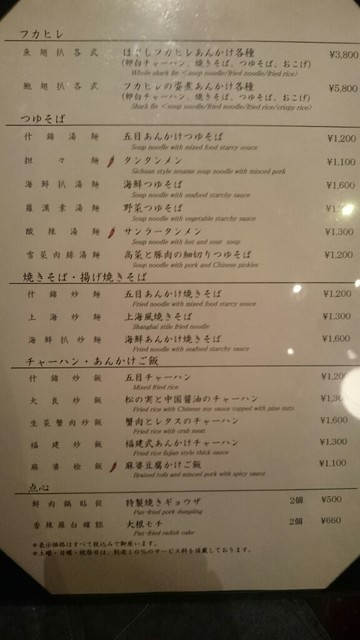 フカヒレ
魚翅扒各式 ほぐしフカヒレあんかけ各種 ¥3,800
(卵白チャーハン、焼きそば、つゆそば、おこげ)
Whole shark fin <soup noodle/fried noodle/fried rice>
鮑翅扒各式 フカヒレの姿煮あんかけ各種 ¥5,800
(卵白チャーハン、焼きそば、つゆそば、おこげ)
Shark fin <soup noodle/fried noodle/fried rice/crispy rice>
つゆそば
什錦湯麺 五目あんかけつゆそば ¥1,200
Soup noodle with mixed food starcy sauce
担々麺 タンタンメン ¥1,100
Sichuan style sesame soup noodle with minced pork
海鮮扒湯麺 海鮮つゆそば ¥1,600
Soup noodle with seafood starchy sauce
羅漢素湯麺 野菜つゆそば
Soup noodle with vegetable starchy sauce
酸辣湯麺 サンラータンメン ¥1,300
Soup noodle with hot and sour soup
雪菜肉絲湯麺 高菜と豚肉の細切りつゆそば ¥1,200
Soup noodle with pork and Chinese pickles
焼きそば・揚げ焼きそば
什錦炒麺 五目あんかけ焼きそば ¥1,200
Fried noodle with mixed food starcy sauce
上海炒麺 上海風焼きそば ¥1,300
Shanghai stile fried noodle
海鮮扒炒麺 海鮮あんかけ焼きそば ¥1,600
Fried noodle with seafood starchy sauce
チャーハン・あんかけご飯
什錦炒飯 五目チャーハン ¥1,200
Mixed fried rice
大良炒飯 松の実と中国醤油のチャーハン
Fried rice with Chinese soy sauce topped with pine nuts
生菜蟹肉炒飯 蟹肉とレタスのチャーハン ¥1,600
Fried rice with crab meat
福建炒飯 福建式あんかけチャーハン ¥1,300
Fried rice fujian style thick sauce
麻婆燴飯 麻婆豆腐かけご飯 ¥1,100
Braised tofu and minced pork with spicy sauce
点心
鮮肉鍋貼餃 特製焼きギョウザ 2個 ¥500
Pan-fried pork dumpling
香煎羅白糕 大根モチ 2個 ¥660
Pan-fried radish cake
＊表示価格はすべて税込みで御座います。
＊土曜・日曜・祝祭日は、別途10%のサービス料を頂戴しております。